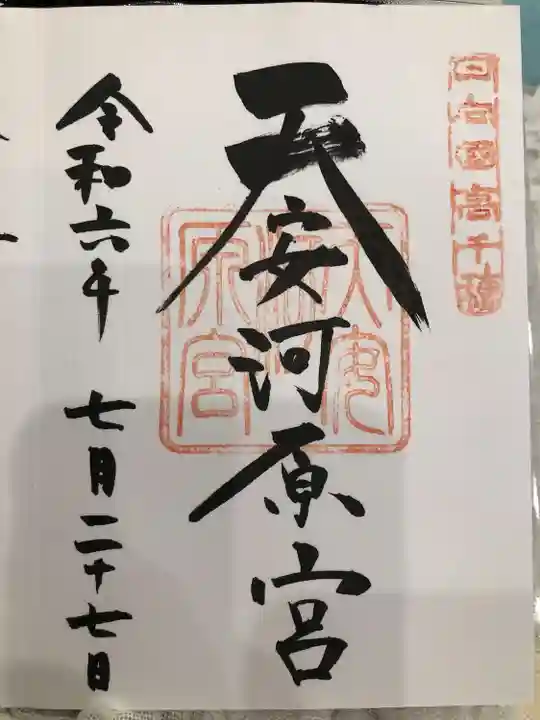 日向國高千穂
天安河原宮
天安河原宮
令和六年 七月二十七日